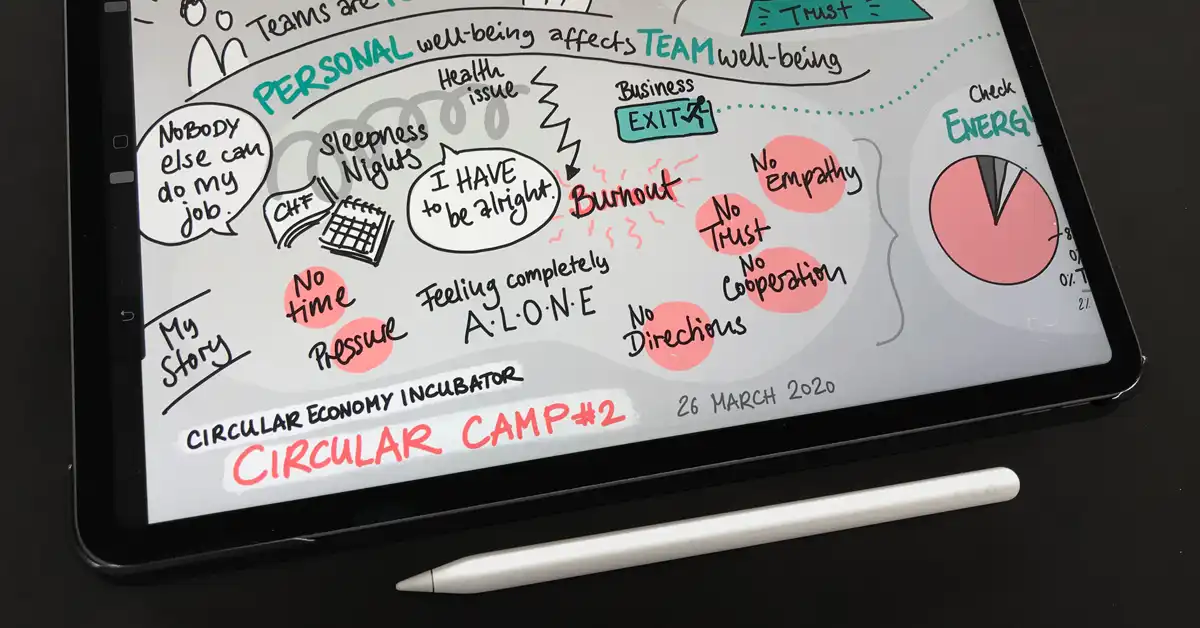 Teams are
Trust
PERSONAL well-being affects TEAM well-being
Health
issue
Business
EXIT
Check
ENERGY
NOBODY
else can
do my
job.
Sleepness
Nights
CHF
I HAVE
to be alright.
Burnout
No
Empathy
No
Trust
No
Cooperation
No
Directions
No
time
Pressure
Feeling completely
A·L·O·N·E
My
Story
CIRCULAR ECONOMY INCUBATOR
CIRCULAR CAMP #2
26 MARCH 2020
0%
2%